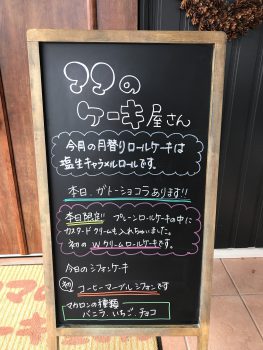 ??の
ケーキ屋さん
今月の月替りロールケーキは
塩生キャラメルロールです。
本日、ガトーショコラあります!!
本日限定!! プレーンロールケーキの中に
カスタードクリームも入れちゃいました。
初のWクリームロールケーキです。
今日のシフォンケーキ
初 コーヒーマーブルシフォンです
マカロンの種類
バニラ、いちご、チョコ